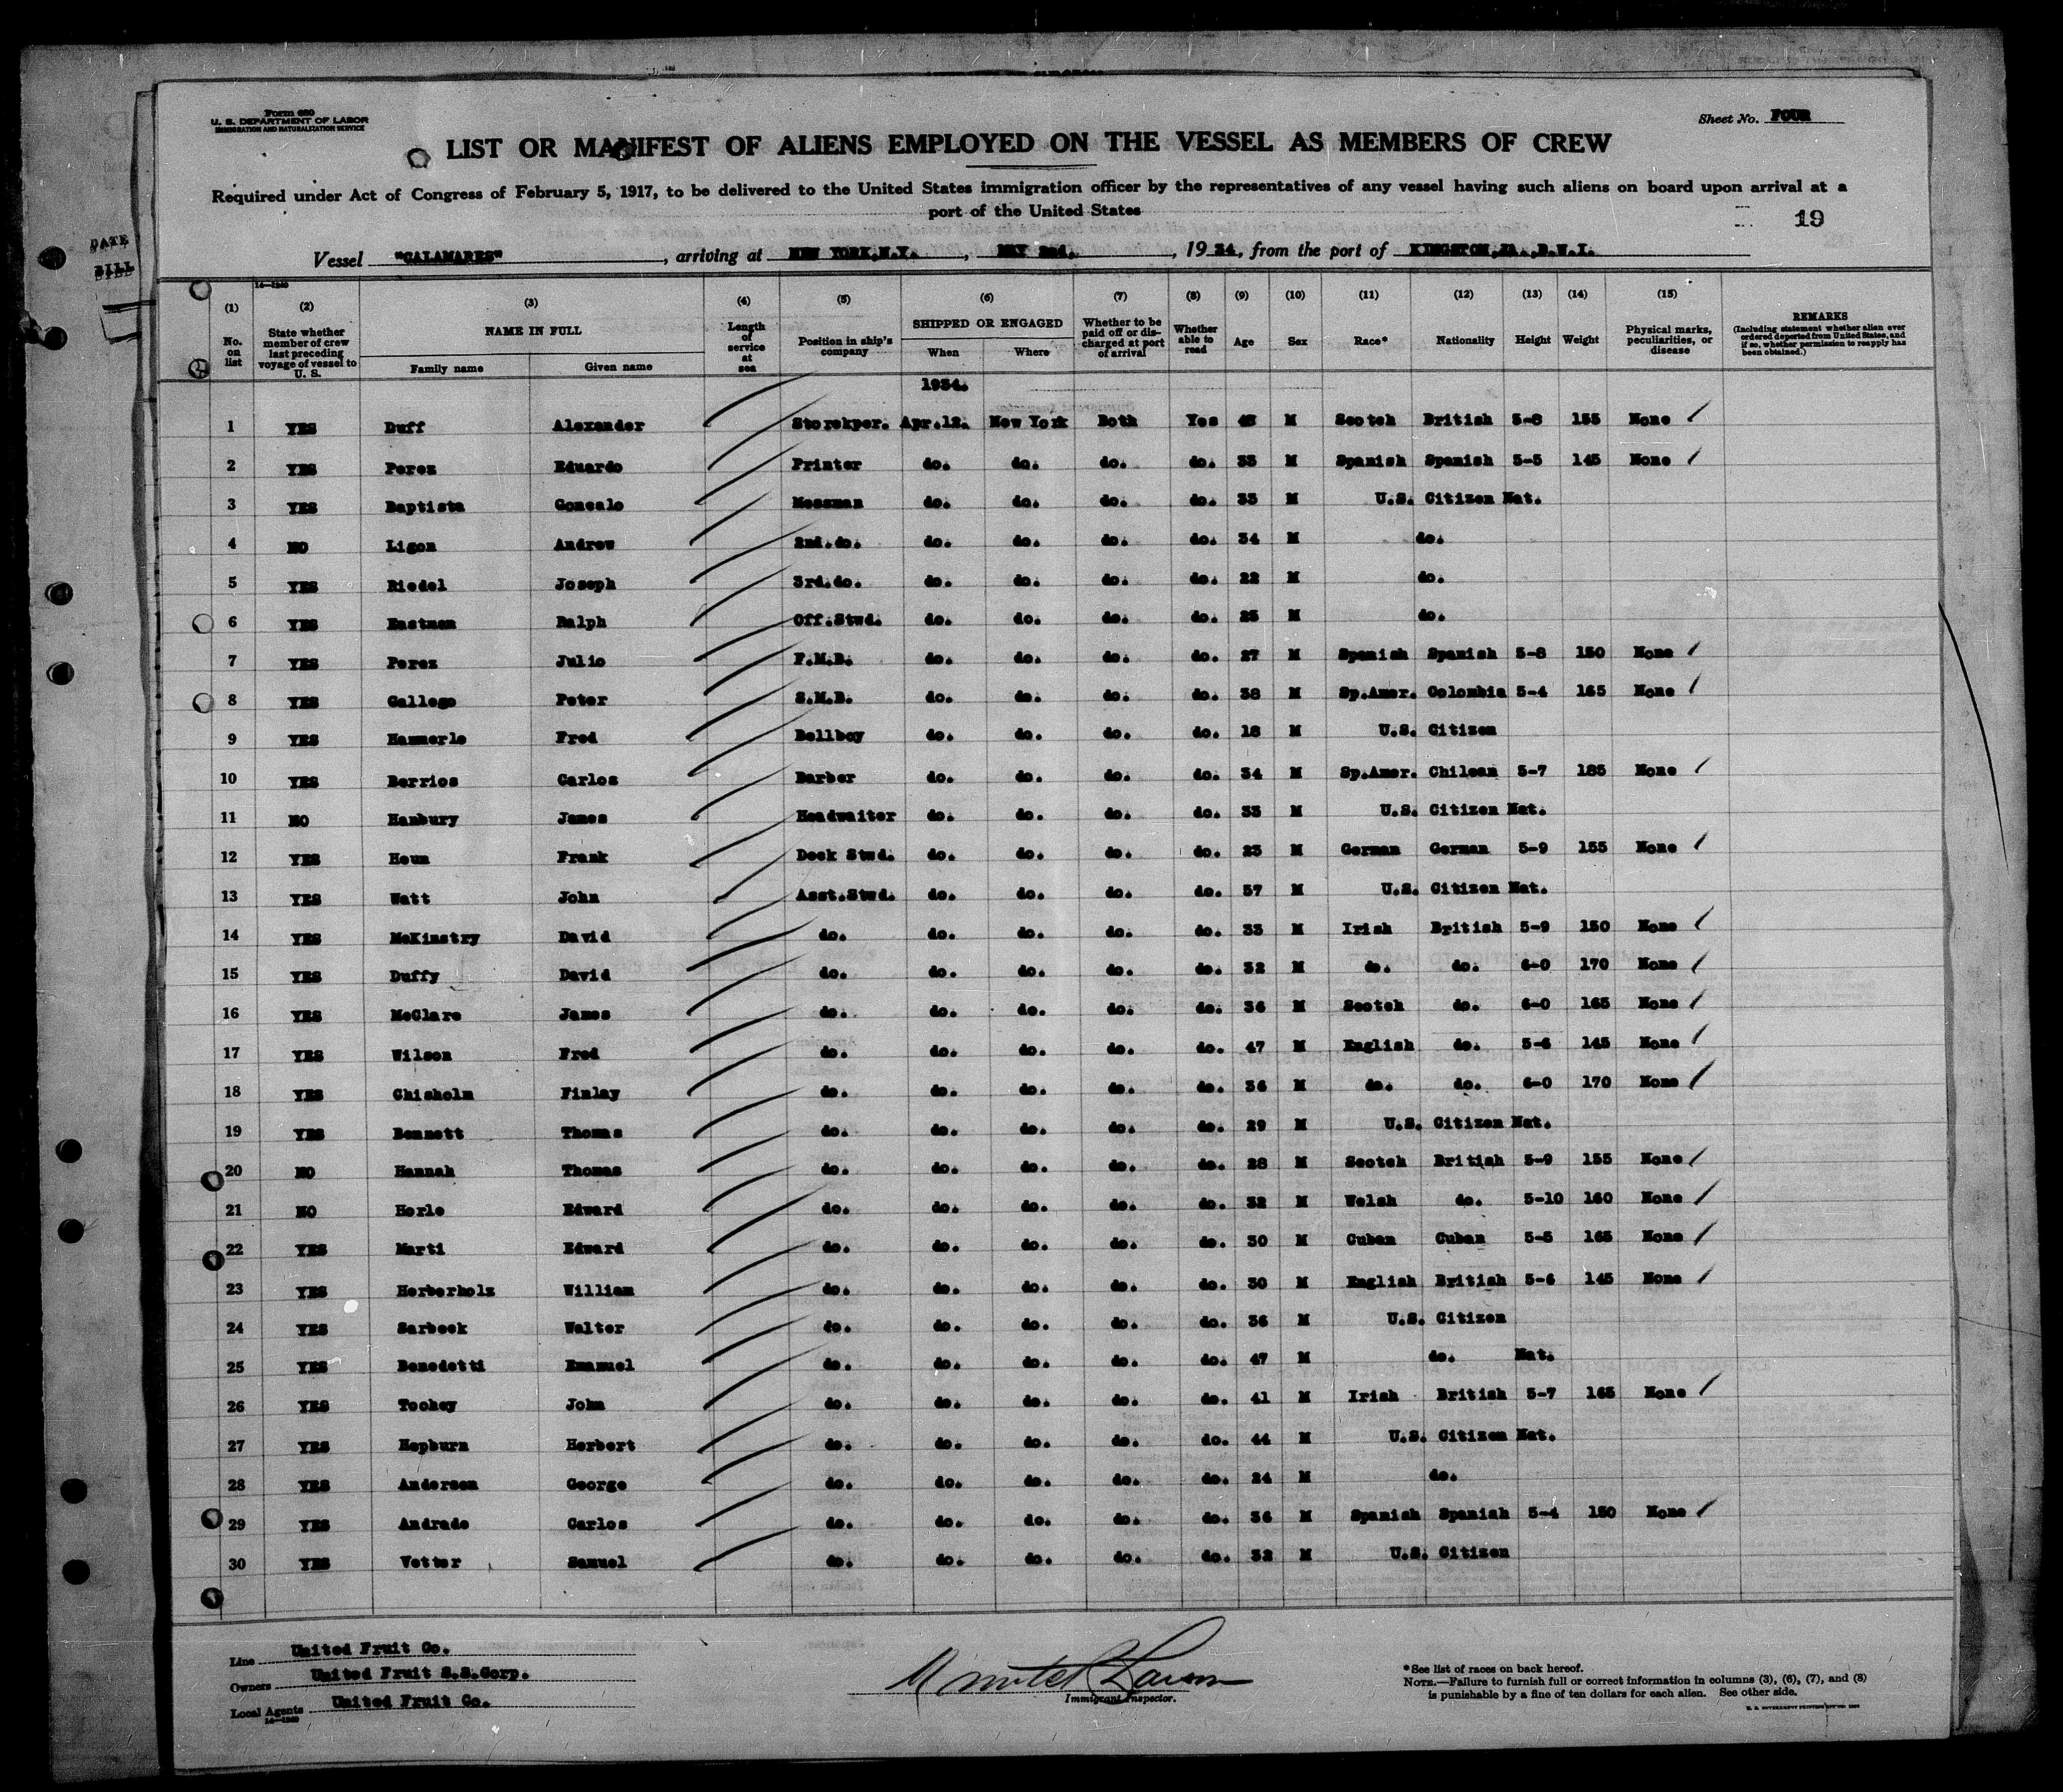 Form 680
U. S. DEPARTMENT OF LABOR
IMMIGRATION AND NATURALIZATION SERVICE
Sheet No. FOUR
LIST OR MANIFEST OF ALIENS EMPLOYED ON THE VESSEL AS MEMBERS OF CREW
Required under Act of Congress of February 5, 1917, to be delivered to the United States immigration officer by the representatives of any vessel having such aliens on board upon arrival at a
port of the United States
19
DATE
BILL
Vessel "CALAMARES", arriving at NEW YORK,N.Y., MAY 2nd., 1934, from the port of KINGSTON,JA.,B.W.I.
14—1240
(1) (2) (3) (4) (5) (6) (7) (8) (9) (10) (11) (12) (13) (14) (15)
No. on list
State whether member of crew last preceding voyage of vessel to U. S.
NAME IN FULL
Family name Given name
Length of service at sea
Position in ship's company
SHIPPED OR ENGAGED
When Where
Whether to be paid off or discharged at port of arrival
Whether able to read
Age Sex Race* Nationality Height Weight
Physical marks, peculiarities, or disease
REMARKS
(Including statement whether alien ever ordered deported from United States, and if so, whether permission to reapply has been obtained.)
1934.
1 YES Duff Alexander Storekper. Apr.12. New York Both Yes M Scotch British 5-8 155 None
2 YES Perez Eduardo Printer do. do. do. do. 33 M Spanish Spanish 5-5 145 None
3 YES Baptista Goncalo Messman do. do. do. do. 33 M U.S. Citizen Nat.
4 NO Ligon Andrew 2nd.do. do. do. do. do. 34 M do.
5 YES Riedel Joseph 3rd.do. do. do. do. do. 22 M do.
6 YES Eastman Ralph Off.Stwd. do. do. do. do. 25 M do.
7 YES Perez Julio F.M.B. do. do. do. do. 27 M Spanish Spanish 5-8 150 None
8 YES Gallego Peter S.M.B. do. do. do. do. 38 M Sp.Amer. Colombia 5-4 165 None
9 YES Hammerle Fred Bellboy do. do. do. do. 18 M U.S. Citizen
10 YES Berrios Carlos Barber do. do. do. do. 34 M Sp.Amer. Chilean 5-7 185 None
11 NO Hanbury James Headwaiter do. do. do. do. 33 M U.S. Citizen Nat.
12 YES Heun Frank Deck Stwd. do. do. do. do. 23 M German German 5-9 155 None
13 YES Watt John Asst.Stwd. do. do. do. do. 37 M U.S. Citizen Nat.
14 YES McKinstry David do. do. do. do. do. 33 M Irish British 5-9 150 None
15 YES Duffy David do. do. do. do. do. 32 M do. do. 6-0 170 None
16 YES McClare James do. do. do. do. do. 36 M Scotch do. 6-0 165 None
17 YES Wilson Fred do. do. do. do. do. 47 M English do. 5-6 145 None
18 YES Chisholm Finlay do. do. do. do. do. 36 M do. do. 6-0 170 None
19 YES Bennett Thomas do. do. do. do. do. 29 M U.S. Citizen Nat.
20 NO Hannah Thomas do. do. do. do. do. 28 M Scotch British 5-9 155 None
21 NO Horle Edward do. do. do. do. do. 32 M Welsh do. 5-10 160 None
22 YES Marti Edward do. do. do. do. do. 30 M Cuban Cuban 5-5 165 None
23 YES Herberholz William do. do. do. do. do. 30 M English British 5-6 145 None
24 YES Sarbeck Walter do. do. do. do. do. 36 M U.S. Citizen
25 YES Benedetti Emanuel do. do. do. do. do. 47 M do. Nat.
26 YES Toohey John do. do. do. do. do. 41 M Irish British 5-7 165 None
27 YES Hepburn Herbert do. do. do. do. do. 44 M U.S. Citizen Nat.
28 YES Andersen George do. do. do. do. do. 24 M do.
29 YES Andrade Carlos do. do. do. do. do. 36 M Spanish Spanish 5-4 150 None
30 YES Vetter Samuel do. do. do. do. do. 32 M U.S. Citizen
Line United Fruit Co.
Owners United Fruit S.S.Corp.
Local Agents United Fruit Co.
14—1240
Immigrant Inspector.
*See list of races on back hereof.
NOTE.—Failure to furnish full or correct information in columns (3), (6), (7), and (8)
is punishable by a fine of ten dollars for each alien. See other side.